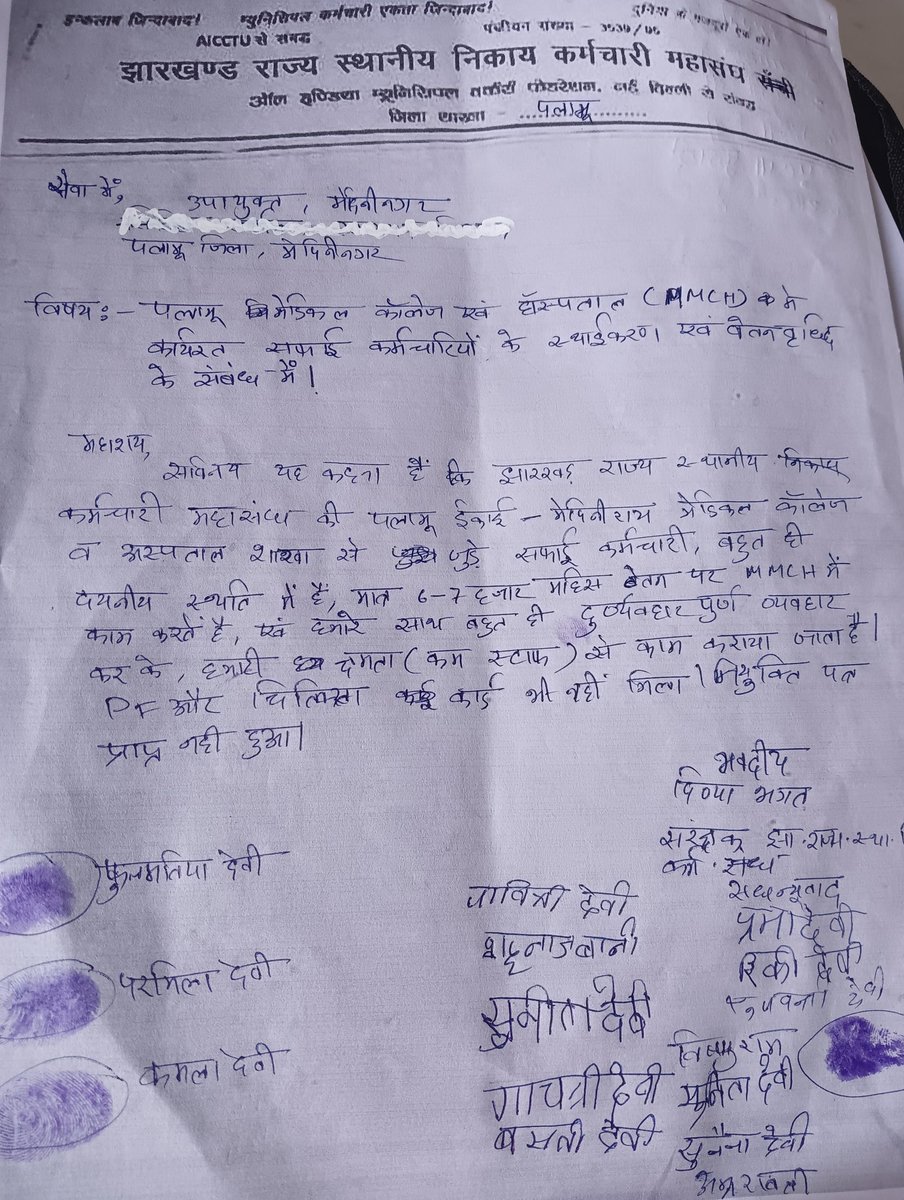 इन्कलाब जिन्दाबाद! म्युनिसिपल कर्मचारी एकता जिन्दाबाद! दुनिया के मजदूरों एक हो!
AICCTU से सम्बद्ध पंजीयन संख्या -
झारखण्ड राज्य स्थानीय निकाय कर्मचारी महासंघ
ऑल इण्डिया म्युनिसिपल वर्कर्स फेडरेशन, नई दिल्ली से संबद्ध
जिला शाखा - ....पलामू..........
सेवा में,
उपायुक्त, मेदिनीनगर
पलामू जिला, मेदिनीनगर
विषय :- पलामू मेडिकल कॉलेज एवं हॉस्पताल (MMCH) में
कार्यरत सफाई कर्मचारियों के स्थाईकरण एवं वेतन वृध्दि
के संबंध में।
महाशय,
सविनय यह कहना है कि झारखण्ड़ राज्य स्थानीय निकाय
कर्मचारी महासंघ की पलामू ईकाई - मेदिनीराय मेडिकल कॉलेज
व अस्पताल शाखा से जुड़े सफाई कर्मचारी, बहुत ही
दयनीय स्थति में हैं, मात्र 6-7 हजार महिस वेतन पर MMCH में
काम करतें है, एवं हमारे साथ बहुत ही दुर्व्यवहार पुर्ण व्यवहार
कर के, हमारी क्षमता (कम स्टाफ) से काम कराया जाता है।
PF और चिकित्सा कार्ड भी नहीं मिला। नियुक्ति पत्र
प्राप्त नही हुआ।
भवदीय
दिव्या भगत
संरक्षक झा. राज्य. स्था.
कर्म. संघ
सधन्यवाद
फुलमतिया देवी
सावित्री देवी
प्रभा देवी
शहनाज बानो
रिंकी देवी
परमिला देवी
सुनीता देवी
देवी
विष्णु राम
कमला देवी
गायत्री देवी
सुनिता देवी
बसंती देवी
सुनैना देवी